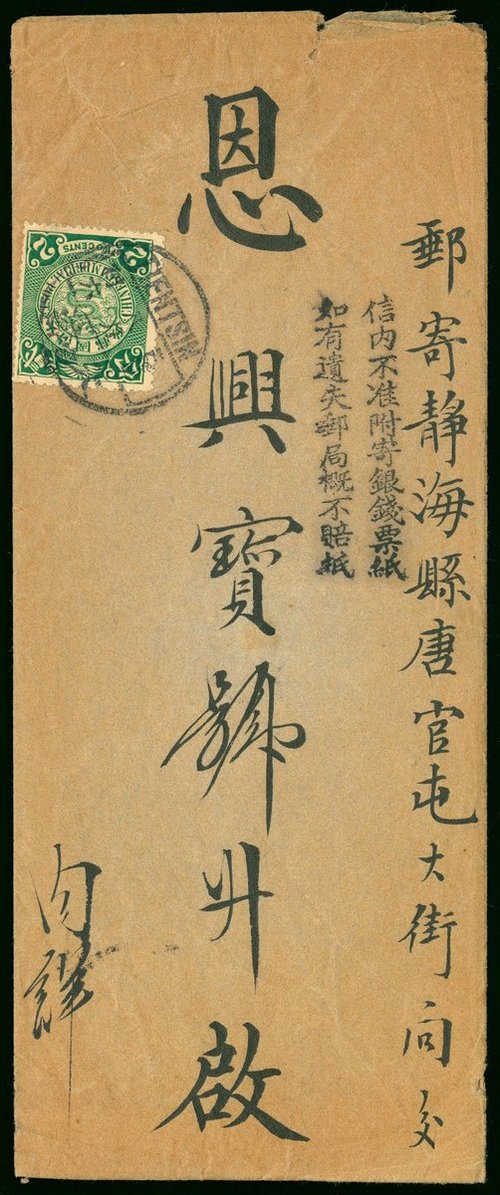 郵寄靜海縣唐官屯大街向交
信内不准附寄銀錢票紙
如有遺失郵局概不賠
恩興寶號升啟
内詳
TIENTSIN
2 CENTS 2